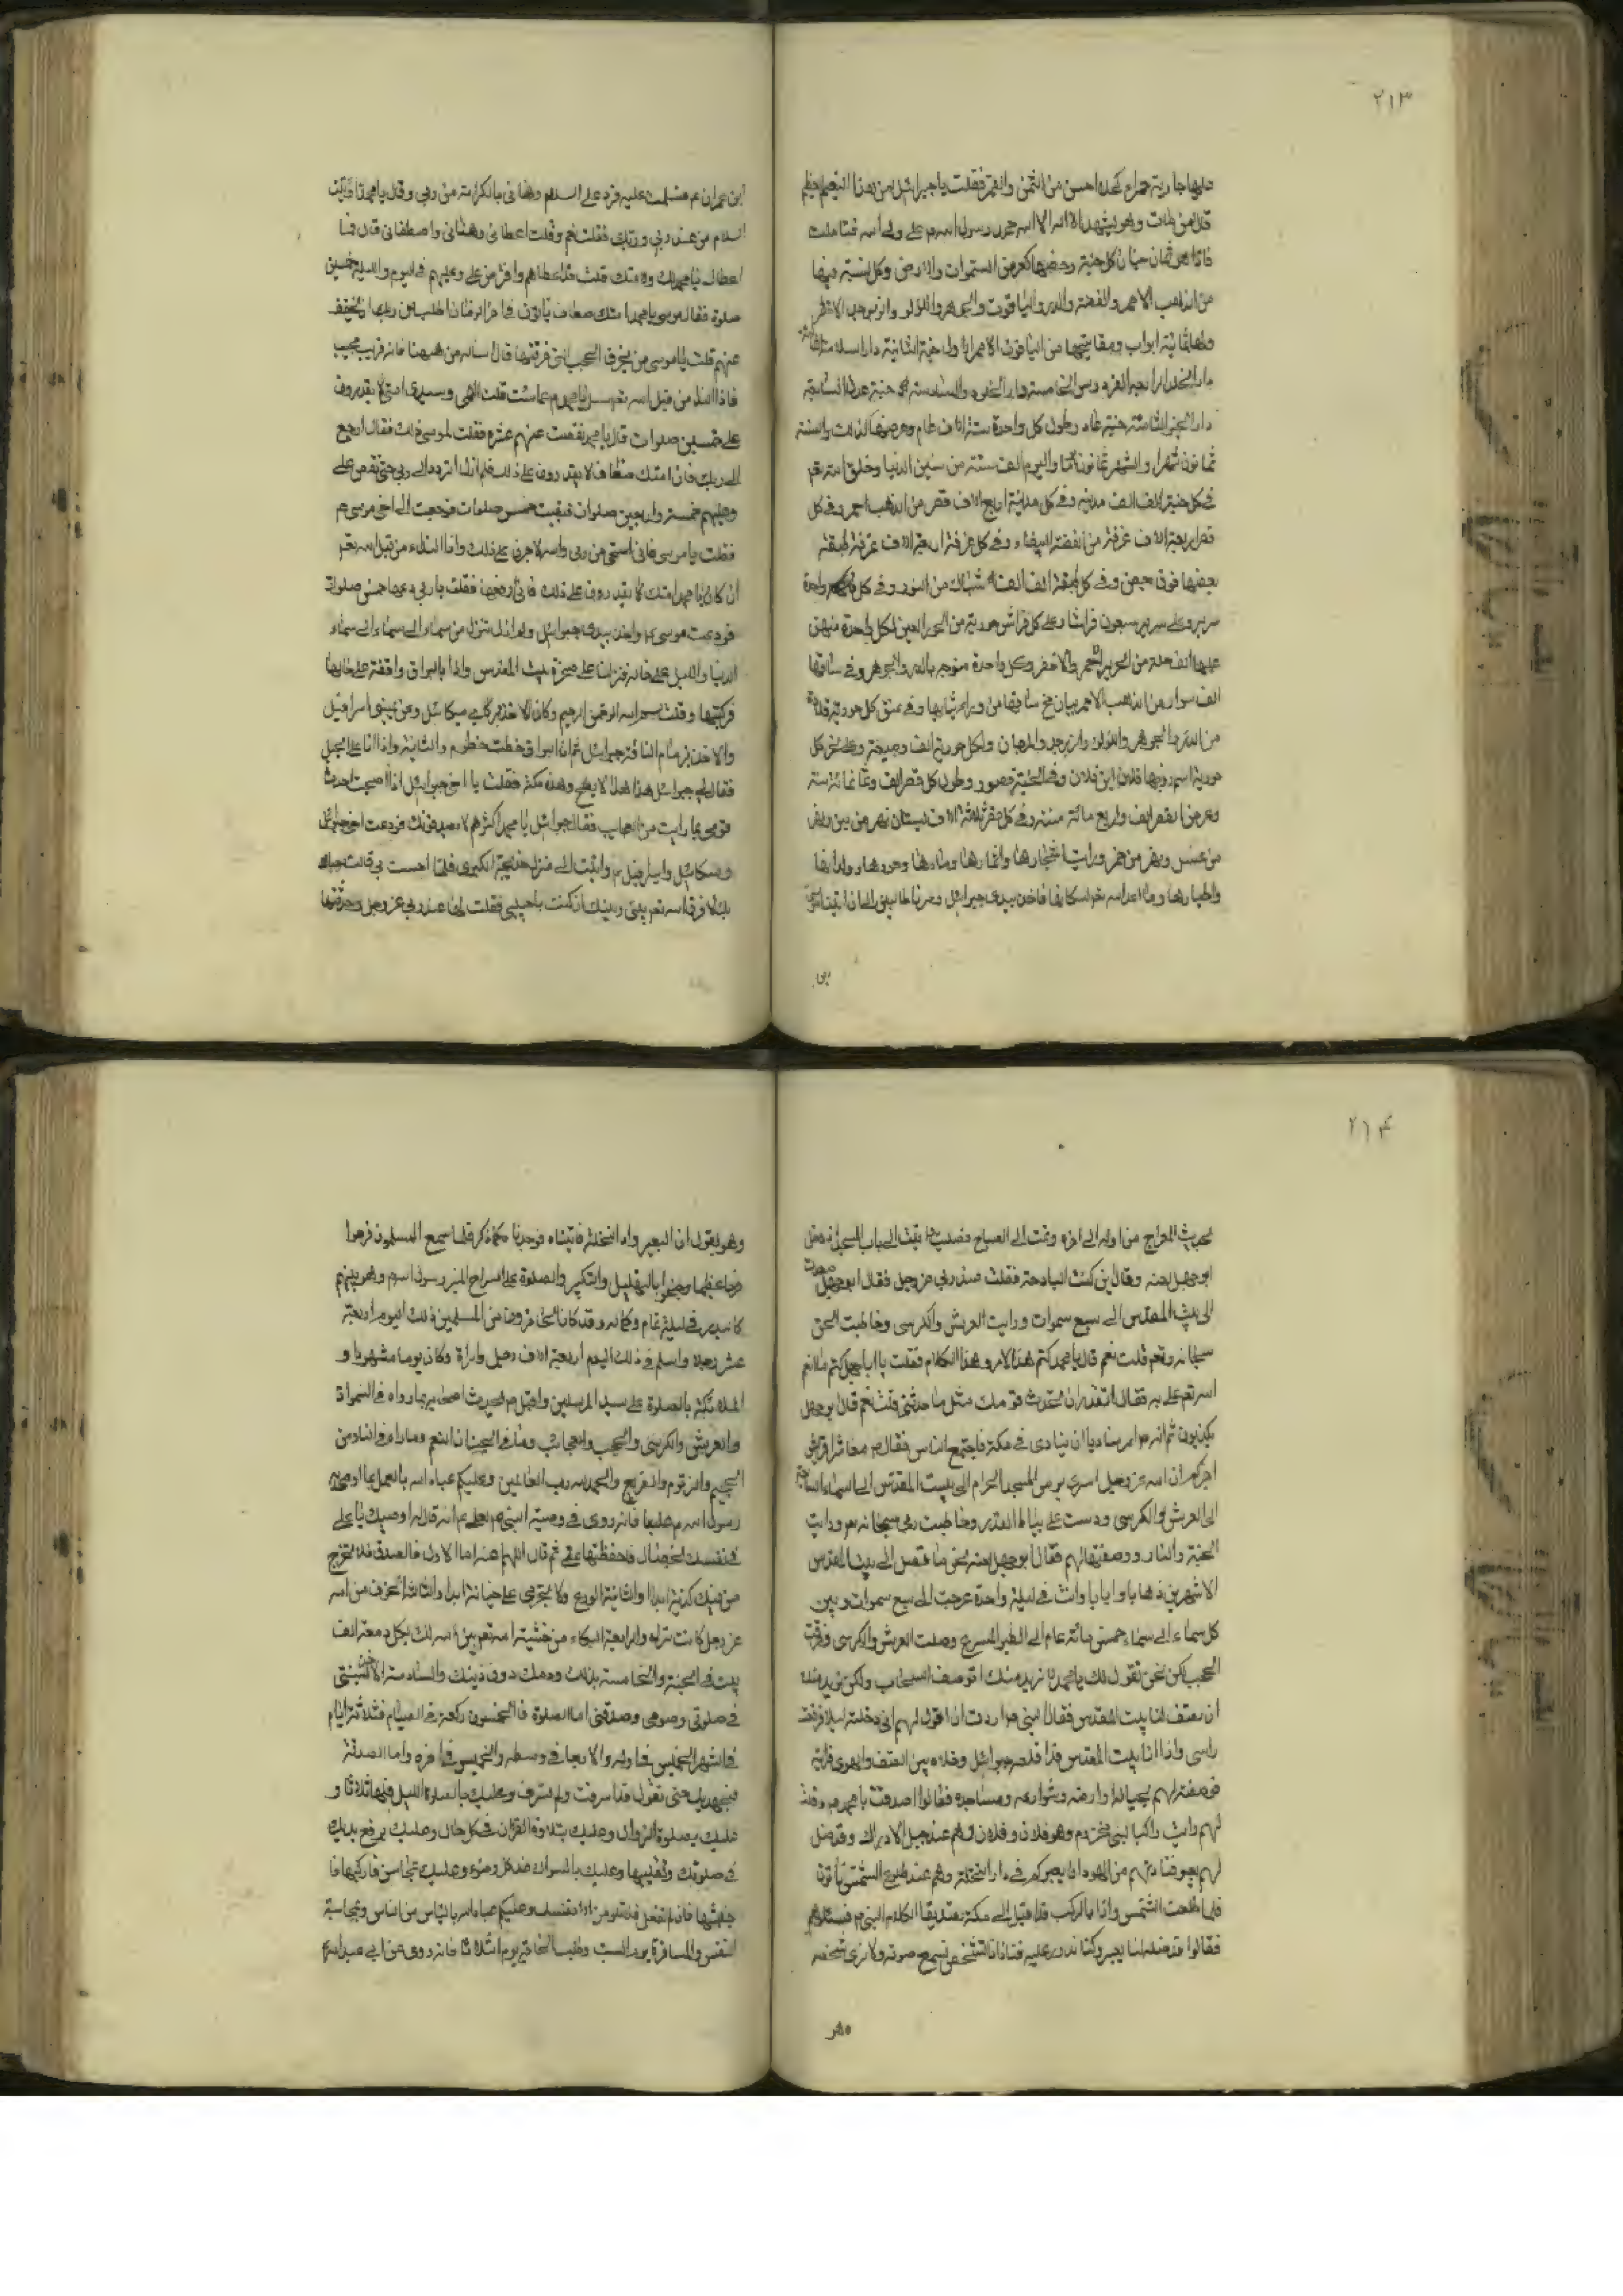 ٢١٣
عليها جارية حمراء كحلاء احسن من الشمس والقمر فقلت يا جبرائيل لمن هذا النعيم العظيم
قال لمن مات وهو يشهد ان لا اله الا الله محمد رسول الله علي ولي الله فتاملت
فاذا هي ثمان جنان كل جنة وعرضها كعرض السموات والارض وكل لبنة فيها
من الذهب الاحمر والفضة والدر والياقوت والجوهر واللؤلؤ والزبرجد الاخضر
ولها ثمانية ابواب ومفاتيحها من الياقوت الاحمر الاولى جنة الثانية دار السلام
دار الخلد الرابعة الفردوس الخامسة دار الخلود والسادسة جنة عدن السابعة
دار الثامنة جنة عاد وطول كل واحدة ستة الاف عام وعرضها كذلك والسنة
ثمانون شهرا والشهر ثمانون يوما واليوم الف سنة من سنين الدنيا وخلق الله تعم
في كل جنة الف الف مدينة وفي كل مدينة اربع الاف قصر من الذهب احمر وفي كل
قصر اربعة الاف غرفة من الفضة البيضاء وفي كل غرفة اربعة الاف غرفة طبقة
بعضها فوق بعض وفي كل طبقة الف الف شباك من النور وفي كل واحدة
سرير وعلى سرير سبعون فراشا وعلى كل فراش حورية من الحور العين لكل واحدة منهن
عليها الف حلة من الحرير الاحمر والاخضر وكل واحدة متوجه بالدر والجوهر وفي ساقها
الف سوار من الذهب الاحمر يبان مخ ساقها من وراء ثيابها وفي عنق كل حورية قلادة
من الدر والجوهر واللؤلؤ والزبرجد والمرجان ولكل حورية الف وصيفة وعلى نحر كل
حورية اسم زوجها فلان ابن فلان وفي الجنة قصور وطول كل قصر الف وثمانمائة سنة
وعرض القصر الف واربع مائة سنة وفي كل قصر ثلاثة الاف بستان نهر من لبن ونهر
من عسل ونهر من خمر ورايت اشجارها واثمارها وماءها وحورها وولدانها
واطيارها وما اعد الله تعم لسكانها فاخذ بيدي جبرائيل ومرنا طالبين الى ان اتينا
بن
ابن عمران عم فسلمت عليه فرد علي السلام وهناني بالكرامة من ربي وقال يا محمد
السلام من عند ربي وربك فقلت نعم وقلت اعطاني وهناني واصطفاني قال فما
اعطاك يا محمد لك ولامتك قلت قد اعطاهم وافترض علي وعليهم في اليوم والليلة خمسين
صلوة فقال موسى يا محمد امتك ضعاف اطلب من ربك التخفيف
عنهم قلت يا موسى من يخرق الحجب التي خرقتها قال سله من ههنا فانه قريب مجيب
فاذا النداء من قبل الله تعم سل يا محمد عما شئت قلت الهي وسيدي امتي لا يقدرون
على خمسين صلوات قال يا محمد نقصت عنهم عشرة فقلت لموسى ذلك فقال ارجع
الى ربك فان امتك ضعاف لا يقدرون على ذلك فلم ازل اتردد الى ربي حتى نقص علي
وعليهم خمسة واربعين صلوات فبقيت خمس صلوات فرجعت الى اخي موسى عم
فقلت يا موسى فاني استحي من ربي والله لاجرني على ذلك واذا النداء من قبل الله تعم
ان كان يا محمد امتك لا يقدرون على ذلك فقلت يا ربي دعها خمس صلوات
فودعت موسى واخذ بيدي جبرائيل ولم ازل تنزل من سماء الى سماء الى سماء
الدنيا والليل على حاله فنزلنا على صخرة بيت المقدس واذا بالبراق واقفة على حالها
فركبتها وقلت بسم الله الرحمن الرحيم وكان الاخذ بركابي ميكائيل وعن يميني اسرافيل
والاخذ بزمام الناقة جبرائيل ثم ان البراق خطت خطوة والثانية واذا انا على الجبل
فقال لي جبرائيل هذا الابطح وهذه مكة فقلت يا اخي جبرائيل اذا اصبحت احدث
قومي بما رايت من العجايب فقال جبرائيل يا محمد اكثرهم لا يصدقونك فودعت اخي جبرائيل
وميكائيل واسرافيل م واتيت الى منزل خديجة الكبرى فلما احست بي قالت
لا فرق الله تعم بيني وبينك اين كنت يا حبيبي فقلت لها عند ربي عز وجل وحدثتها
٢١٤
بحديث المعراج من اوله الى اخره ونمت الى الصباح فصليت واتيت الى باب المسجل فدخل
ابو جهل لعنه وقال اين كنت البارحة فقلت عند ربي عز وجل فقال ابو جهل
الى بيت المقدس الى سبع سموات ورايت العرش والكرسي وخاطبت الحق
سبحانه وتعم قلت نعم قال يا محمد اكتم هذا الامر وهذا الكلام فقلت يا ابا جهل اكتم ما انعم
الله تعم علي به فقال اتقدر ان تحدث قومك مثل ما حدثتني قلت نعم قال ابو جهل
يكذبون ثم انه امر مناديا ان ينادي في مكة فاجتمع الناس فقال م معاشر قريش
اخبركم ان الله عز وجل اسرى بي من المسجد الحرام الى بيت المقدس الى السماء السابعة
الى العرش والكرسي ودست على بساط القدير وخاطبت ربي سبحانه وتعم ورايت
الجنة والنار ووصفتها لهم فقال ابو جهل لعنه نحن ما نصل الى بيت المقدس
الا شهرين ذهابا وايابا وانت في ليلة واحدة عرجت الى سبع سموات وبين
كل سماء الى سماء خمس مائة عام الى الطير المسرع وصلت العرش والكرسي وخرقت
الحجب لكن نحن نقول لك يا محمد ما نريد منك توصف السحاب ولكن نريد منك
ان تصف لنا بيت المقدس فقال النبي م اردت ان اقول لهم اني دخلته ليلا فرفعت
راسي واذا انا ببيت المقدس
فوصفته لهم بحيطانه وارضه وشوارعه ومساجده فقالوا صدقت يا محمد وقلت
لهم رايت راكبا لبني مخزوم وهو فلان وفلان وهم عند جبل الاراك وقد ضل
لهم بعير وهم عند طلوع الشمس ياتون
فلما طلعت الشمس واذا بالركب قد اقبل الى مكة تصديقا لكلام النبي م فسئلوهم
فقالوا قد ضل لنا بعير وكنا ندور عليه فنادانا شخص نسمع صوته ولا نرى شخصه
وهو
وهو يقول ان البعير وادي النخلة فاتيناه فوجدناه كما ذكر فلما سمع المسلمون فرحوا
فرحا عظيما وضجوا بالتهليل والتكبير والصلوة على السراج المنير رسول الله م وهو بينهم
كالبدر في ليلة تمام وكماله وقد كان من المسلمين ذلك اليوم اربعة
عشر رجلا واسلم في ذلك اليوم اربعة الاف رجل وامراة وكان يوما مشهورا و
الملائكة بالصلوة على سيد المرسلين واقبل م يحدث اصحابه بما راه في السموات
والعرش والكرسي والحجب والعجائب وما في الجنان النعم وما راه في النار من
الجحيم والزقوم والضريع والحمد لله رب العالمين وعليكم عباد الله بالعمل بما اوصى
رسول الله م عليا فانه روي في وصية النبي م لعلي م انه قال له اوصيك يا علي
في نفسك بخصال فاحفظها عني ثم قال اللهم اعنه اما الاولى فالصدق فلا يخرج
من فيك كذبة ابدا والثانية الورع ولا يجترى على خيانة ابدا والثالثة الخوف من الله
عز وجل كانك تراه والرابعة البكاء من خشية الله تعم يبني الله لك بكل دمعة الف
بيت في الجنة والخامسة بذلك دمك دون دينك والسادسة الاخذ بسنتي
في صلوتي وصومي وصدقتي اما الصلوة فالخمسون ركعة واما الصيام فثلاثة ايام
في الشهر الخميس في اوله والاربعا في وسطه والخميس في اخره واما الصدقة
فبجهدك حتى تقول قد اسرفت ولم تسرف وعليك بالصلوة الليل قالها ثلاثا و
عليك بصلوة الزوال وعليك بتلاوة القران في كل حال وعليك برفع يديك
في صلوتك وتقليبها وعليك بالسواك عند كل وضوء وعليك بمحاسن فاركبها فا
جتنبها فان لم تفعل فلا تلومن الا نفسك وعليكم عباد الله بالياس من الناس ومحاسبة
النفس والمسافرة يوم السبت وطلب الحاجة يوم الثلاثا فانه روي عن ابي عبد الله